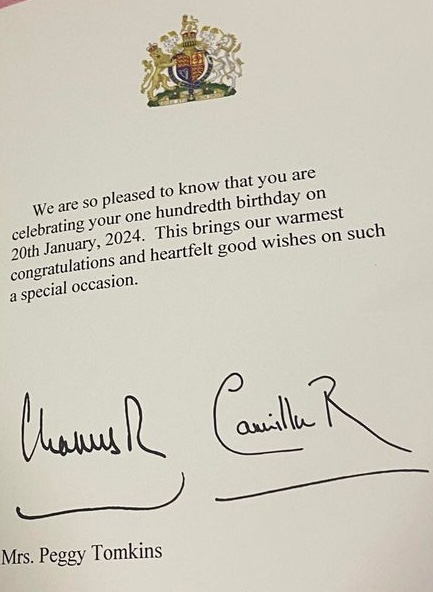 We are so pleased to know that you are
celebrating your one hundredth birthday on
20th January, 2024. This brings our warmest
congratulations and heartfelt good wishes on such
a special occasion.
Charles R
Camilla R
Mrs. Peggy Tomkins